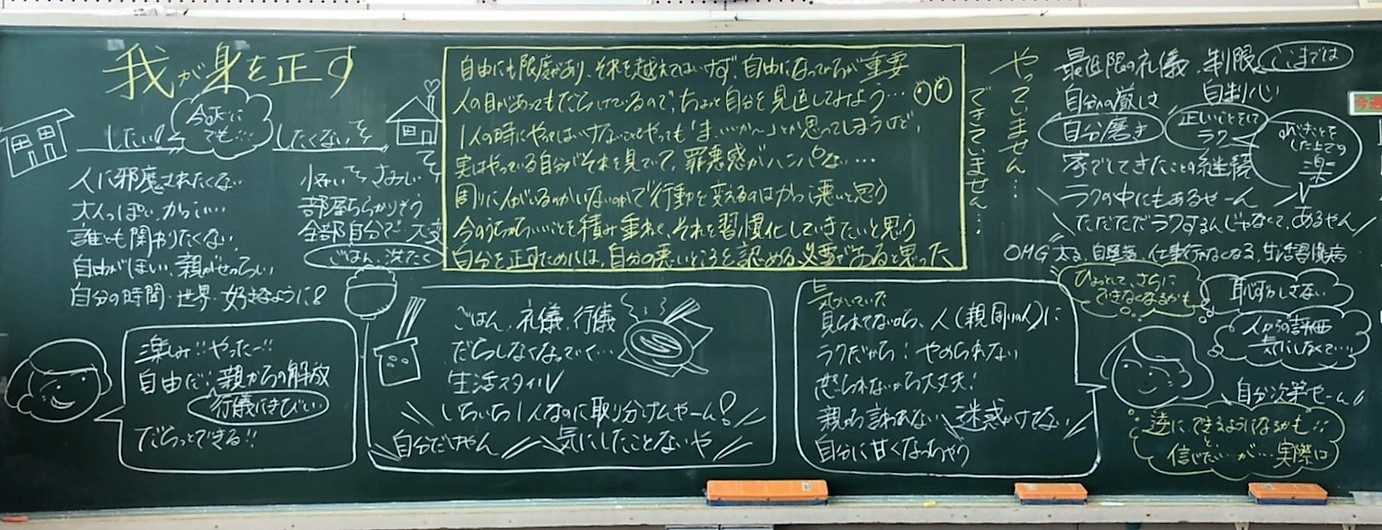 我が身を正す
したい!
今はどこにでも…
したくない
人に邪魔されたくない
大人っぽい、かっこいい
誰とも関わりたくない
自由がほしい、親がせっつい
自分の時間・世界 好きなように
部屋ちらかりそう
全部自分で 大変
ごはん、洗たく
自由にも限度があり、それを越えてはいけず、自由になっているが重要
人の目があってもだらけているので、ちょっと自分を見直してみよう…
1人の時にやってはいけないことをやっても「ま、いいか〜」とか思ってしまうけど、
実はやっている自分がそれを見ていて、罪悪感がハンパない…
周りに人がいるのかいないのかで行動を変えるのはかっこ悪いと思う
今のうちからいいことを積み重ねて、それを習慣化していきたいと思う
自分を正すためには、自分の悪いところを認める必要があると思った
やっていません…
できていません…
最低限の礼儀、制限 ここまでは
自分への厳しさ 自制心
自分磨き
正しいことをしてラク
やることをした上での楽
家でしてきたことの継続
ラクの中にもあるせーん
ただただラクするんじゃなくて、あるせん
OMG 太る、自堕落、仕事行かなくなる、生活習慣病
ひょっとして、さらにできなくなるかも
恥ずかしさない
人からの評価 気にしなくて…
自分次第やーん!!
逆にできるようになるかも…
と
信じたい…が…実際は
楽しみ!! やったー!!
自由だ! 親からの解放
行儀にきびしい
だらっとできる!!
ごはん、礼儀、行儀
だらしなくなっていく…
生活スタイル
いちいち1人なのに取り分けんやーん!
自分だけやん
気にしたことないや
気がしていた
見られてないなら、人(親、周りの人)に
ラクだから! やめられない
怒られないから大丈夫!
親から言われない
迷惑かけてない
自分に甘くなっちゃう